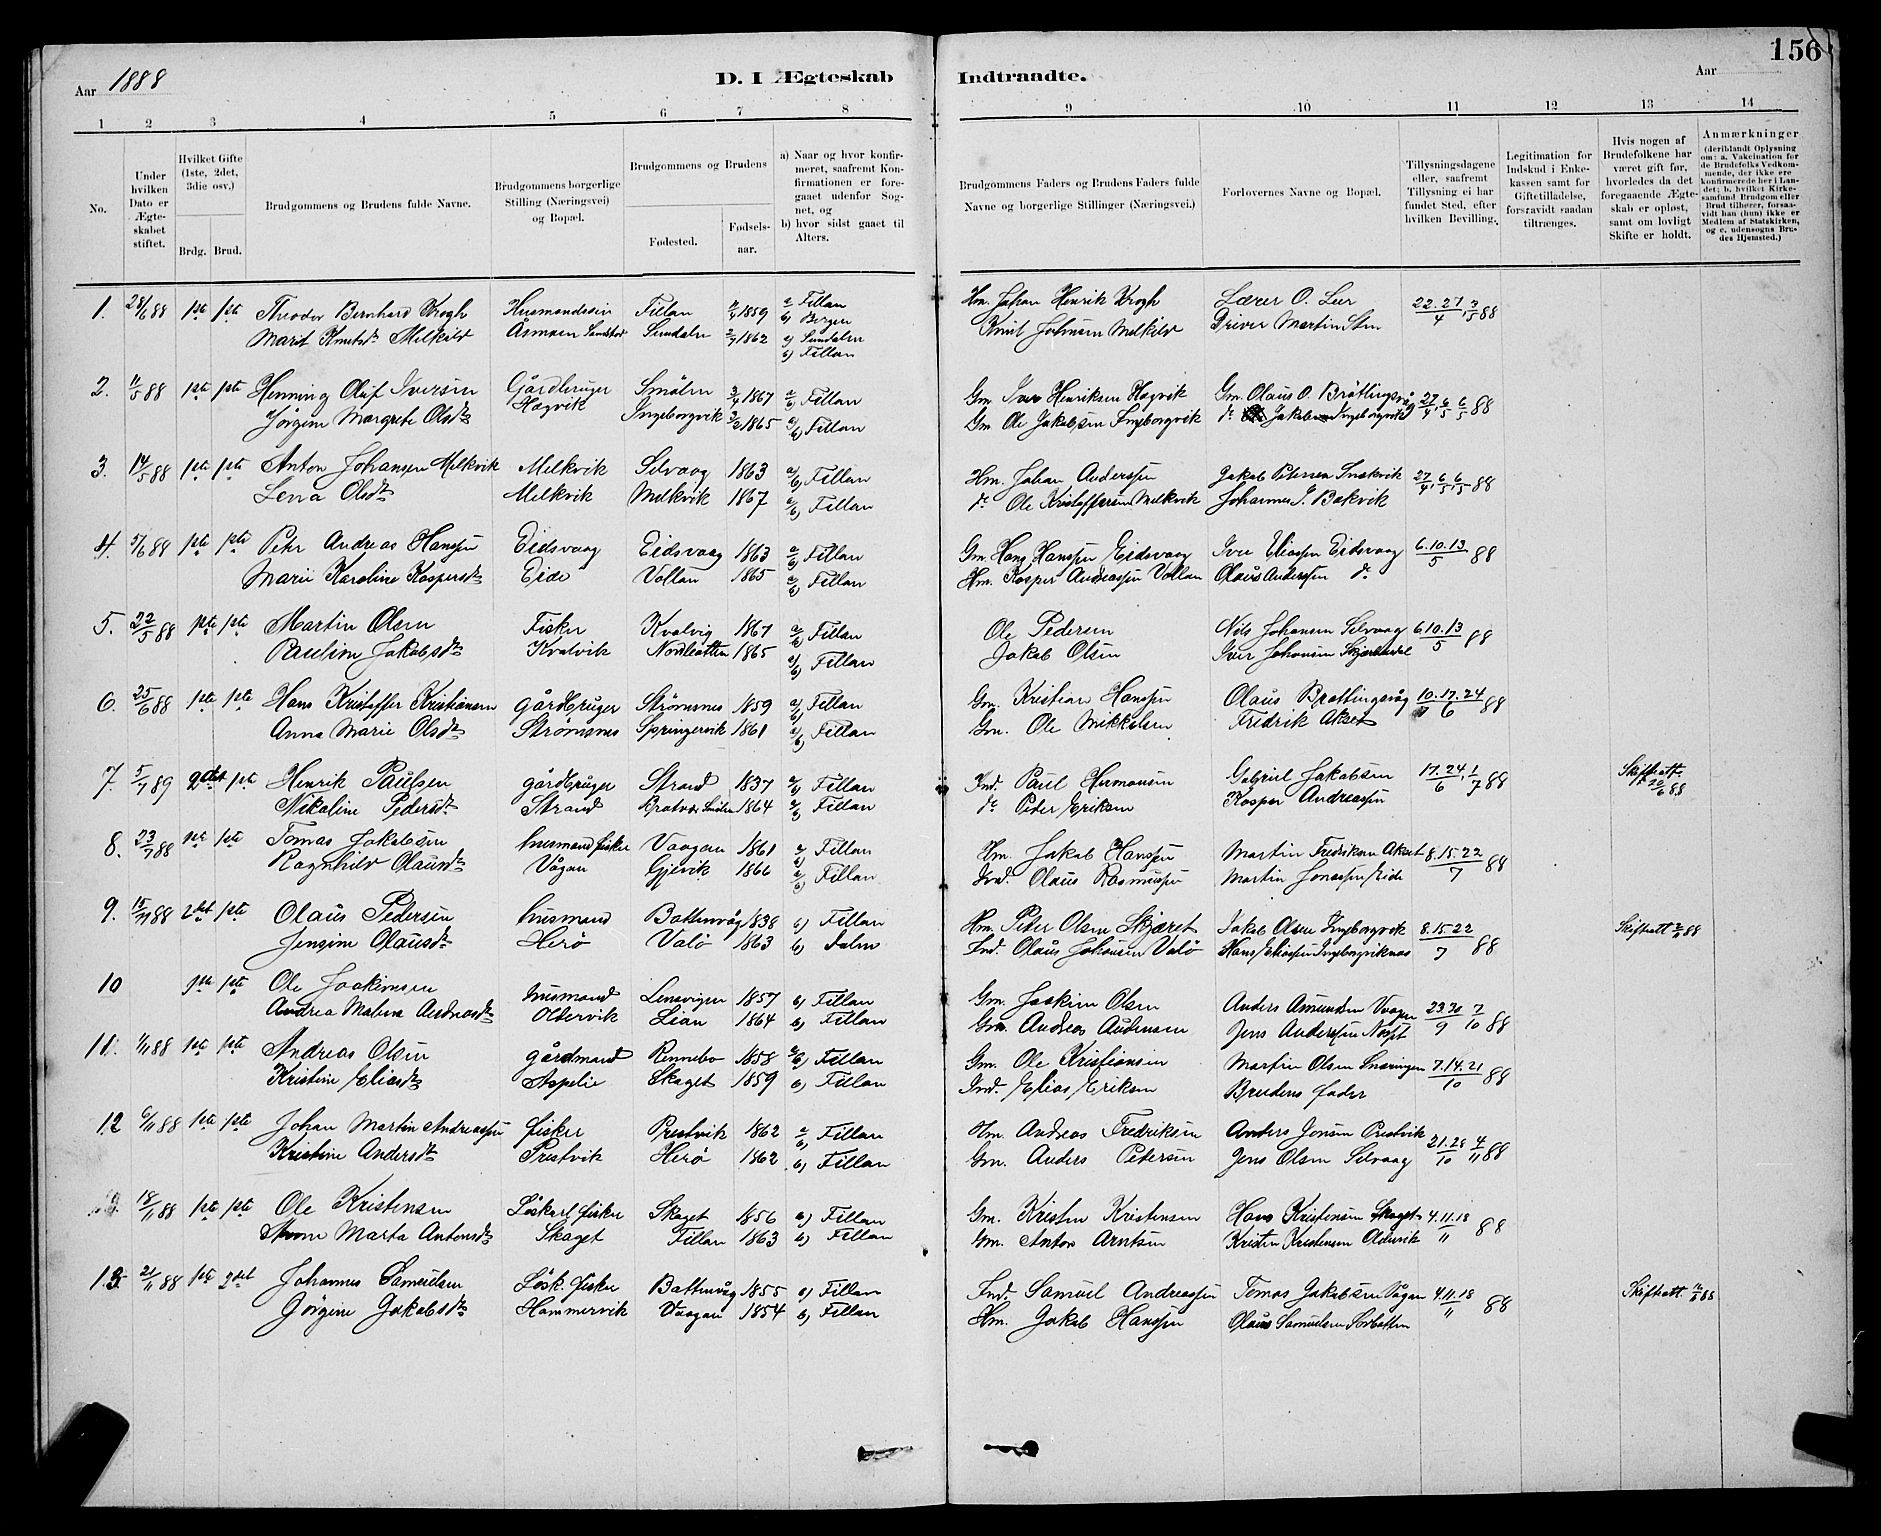 156
Aar 1888
D. I Ægteskab Indtraadte.
Aar
1 2 3 4 5 6 7 8 9 10 11 12 13 14
No.
Under hvilken Dato er Ægteskabet stiftet.
Hvilket Gifte (1ste, 2det, 3die osv.)
Brdg. Brud.
Brudgommens og Brudens fulde Navne.
Brudgommens borgerlige Stilling (Næringsvei) og Bopæl.
Brudgommens og Brudens
Fødested. Fødselsaar.
a) Naar og hvor konfirmeret, saafremt Konfirmationen er foregaaet udenfor Sognet, og
b) hvor sidst gaaet til Alters.
Brudgommens Faders og Brudens Faders fulde Navne og borgerlige Stillinger (Næringsvei.)
Forlovernes Navne og Bopæl.
Tillysningsdagene eller, saafremt Tillysning ei har fundet Sted, efter hvilken Bevilling.
Legitimation for Indskud i Enkekassen samt for Giftetilladelse, forsavidt saadan tiltrænges.
Hvis nogen af Brudefolkene har været gift før, hvorledes da det foregaaende Ægteskab er opløst, samt om lovligt Skifte er holdt.
Anmærkninger (deriblandt Oplysning om: a. Vakcination for de Brudefolks Vedkommende, der ikke ere konfirmerede her i Landet; b. hvilket Kirkesamfund Brudgom eller Brud tilhører, forsaavidt han (hun) ikke er Medlem af Statskirken, og c. udensogns Brudes Hjemsted.)
1. 28/6 88 1ste 1ste Theodor Bernhard Krogh Husmandssøn Fillan 1859 a) Fillan b) Bergen Hm. Johan Henrik Krogh Lærer O. Leer 22.27/4, 3/5 88
Marit Knutsdtr Melkild Åsmoen Sundalen 1862 a) Sundalen b) Fillan Knut Johnsen Melkild Driver Martin Sten
2. 11/5 88 1ste 1ste Henning Oluf Iversen Gårdbruger Smölen 3/4 1867 a/b) Fillan Gm. Iver Henriksen Hagvik Gm. Olaus O. Bröttingsvåg 27/4, 6/5 88
Jörgine Margrete Olsdtr Hagvik Ingeborgvik 1865 a/b) Fillan Gm Ole Jakobsen Ingeborgvik do Jakobsen Ingeborgvik
3. 14/5 88 1ste 1ste Anton Johansen Melkvik Melkvik Selvaag 1863 a/b) Fillan Hm. Johan Anderssen Jakob Petersen 27/4, 6/5 88
Lena Olsdtr Melkvik Melkvik 1867 a/b) Fillan do Ole Kristoffersen Melkvik Johannes J. Bakvik
4. 5/6 88 1ste 1ste Peter Andreas Hanssen Eidsvaag Eidsvaag 1863 a/b) Fillan Gm. Hans Hanssen Eidsvaag Iver Eliassen Eidsvaag 6.10.13/5 88
Marie Karoline Kaspersdtr Eide Vollan 1865 a/b) Fillan Hm. Kasper Andreassen Vollan Olaus Anderssen do
5. 22/5 88 1ste 1ste Martin Olsen Fisker Kvalvig 1867 a/b) Fillan Ole Pedersen Nils Johansen Selvaag 6.10.13/5 88
Pauline Jakobsdtr Kvalvik Nordbotten 1865 a/b) Fillan Jakob Olsen Iver Johansen
6. 25/6 88 1ste 1ste Hans Kristoffer Kristiansen gårdbruger Strömsnes 1859 a/b) Fillan Gm. Kristian Hanssen Olaus Brottingsvåg 10.17.24/6 88
Anna Marie Olsdtr Strömsnes Springervik 1861 a/b) Fillan Gm. Ole Mikkelsen Fredrik Akset
7. 5/7 89 2det 1ste Henrik Paulsen gårdbruger Strand 1837 a/b) Fillan Ind. Paul Hermansen Gabriel Jakobsen 17.24/6, 1/7 88 Skifteatt. 22/6 88
Nikoline Pedersdtr Strand 1864 a/b) Fillan do Peder Eriksen Kasper Andreassen
8. 23/7 88 1ste 1ste Tomas Jakobsen husmand fisker Vaagan 1861 a/b) Fillan Hm. Jakob Hanssen Martin Fredriksen Akset 8.15.22/7 88
Ragnhild Olausdtr Vågan Gjevik 1866 a/b) Fillan Ind. Olaus Rasmussen Martin Jonassen Eide
9. 15/11 88 2det 1ste Olaus Pedersen husmand Battenvåg 1838 b) Fillan Hm. Peter Olsen Skjæret Jakob Olsen Ingeborgvik 8.15.22/7 88 Skifteatt 88
Jensine Olausdtr Herö Valö 1863 b) Dolm Ind. Olaus Johansen Valö Hans Eliassen Ingeborgviknes
10 1ste 1ste Ole Joakimsen husmand Lensvigen 1857 b) Fillan Gm. Joakim Olsen Anders Amundsen Vaagan 23.30/9 7/10 88
Andrea Malena Andreasdtr Oldervik Lian 1864 b) Fillan Gm. Andreas Audensen Jens Anderssen
11. 1/11 88 1ste 1ste Andreas Olsen gårdmand Rennebo 1858 a/b) Fillan Gm. Ole Kristiansen Martin Olsen Snæringen 7.14.21/10 88
Kristine Eliasdtr Aspelie Skaget 1859 b) Fillan Ind. Elias Eriksen Brudens fader
12 6/11 88 1ste 1ste Johan Martin Andreassen fisker Prestvik 1862 a/b) Fillan Hm. Andreas Fredriksen Anders Jonsen Prestvik 21.28/10 4/11 88
Kristine Andersdtr Prestvik Herö 1862 b) Fillan Gm. Anders Petersen Jens Olsen Selvaag
18/11 88 1ste 1ste Ole Kristensen Löskarl fisker Skaget 1856 b) Fillan Gm. Kristen Kristensen Hans Kristensen Skaget 4.11.18/11 88
Marta Antonsdtr Skaget Fillan 1863 b) Fillan Gm. Anton Arntsen Kristen Kristensen Oldervik
13. 21/11 88 1ste 2det Johannes Samuelsen Lösk. fisker Battenvåg 1855 b) Fillan Ind. Samuel Andreassen Tomas Jakobsen Vågan 4.11.18/11 88 Skifteatt. 88
Jörgine Jakobsdtr Hammervik Vaagan 1854 b) Fillan Hm. Jakob Hanssen Olaus Samuelsen Sörbotten